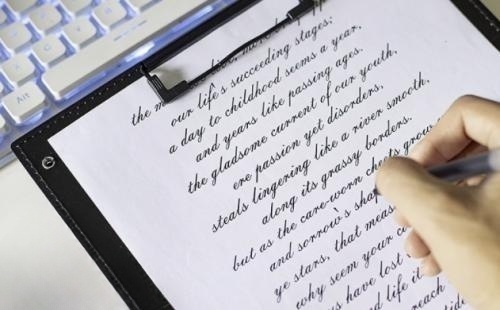 the
our life's succeeding stages;
a day to childhood seems a year,
and years like passing ages.
the gladsome current of our youth,
ere passion yet disorders,
steals lingering like a river smooth,
along its grassy borders.
but as the care-worn cheeks grow
and sorrow's
ye stars, that
why seem your
have lost
life it
reach
Alt